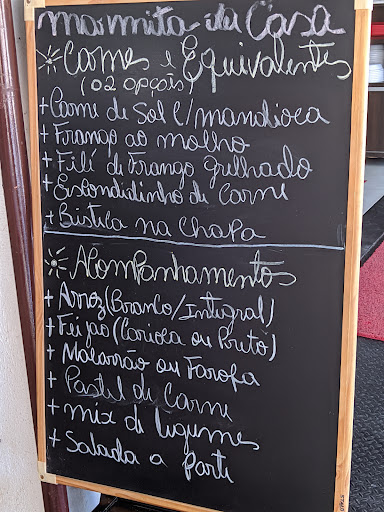 marmita da Casa
Carnes e Equivalentes
(02 opções)
+ Carne de Sol c/ mandioca
+ Frango ao molho
+ Filé de Frango grelhado
+ Escondidinho de Carne
+ Bisteca na Chapa
Acompanhamentos
+ Arroz (Branco/Integral)
+ Feijão (Carioca ou Preto)
+ Macarrão ou Farofa
+ Pastel de Carne
+ mix de legumes
+ Salada a parte